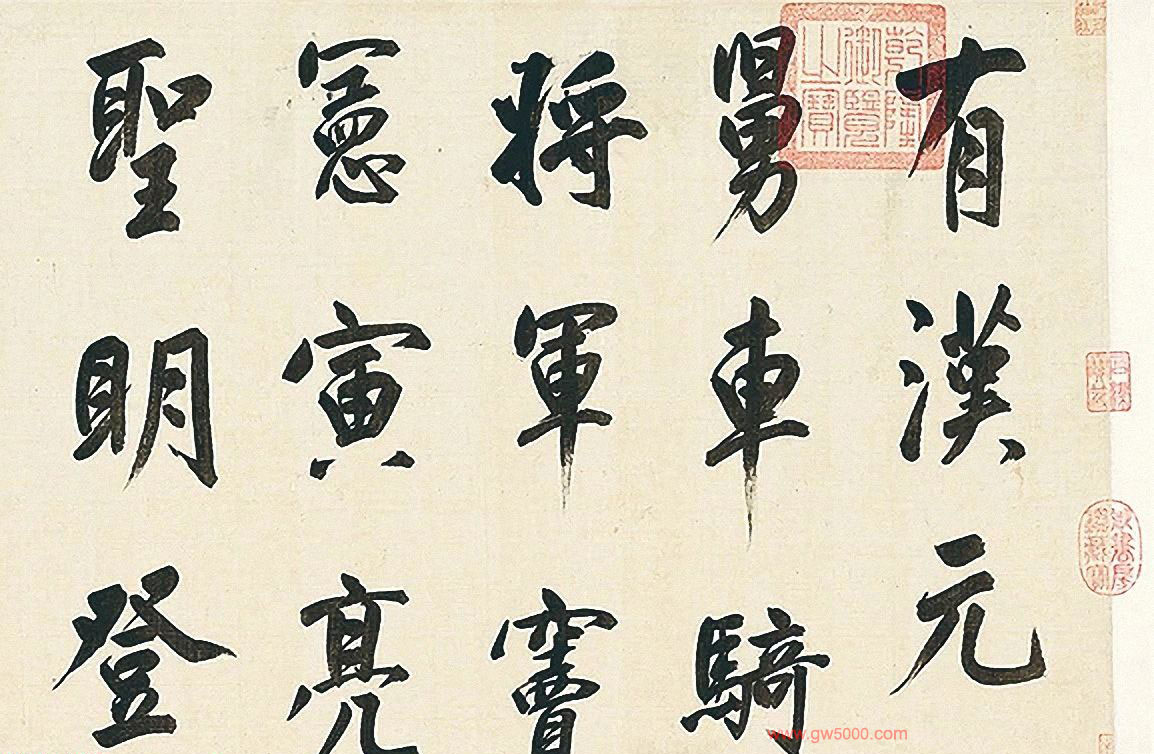 有漢元
舅車騎
將軍竇
憲寅亮
聖明登
乾隆御覽之寶
www.gw5000.com